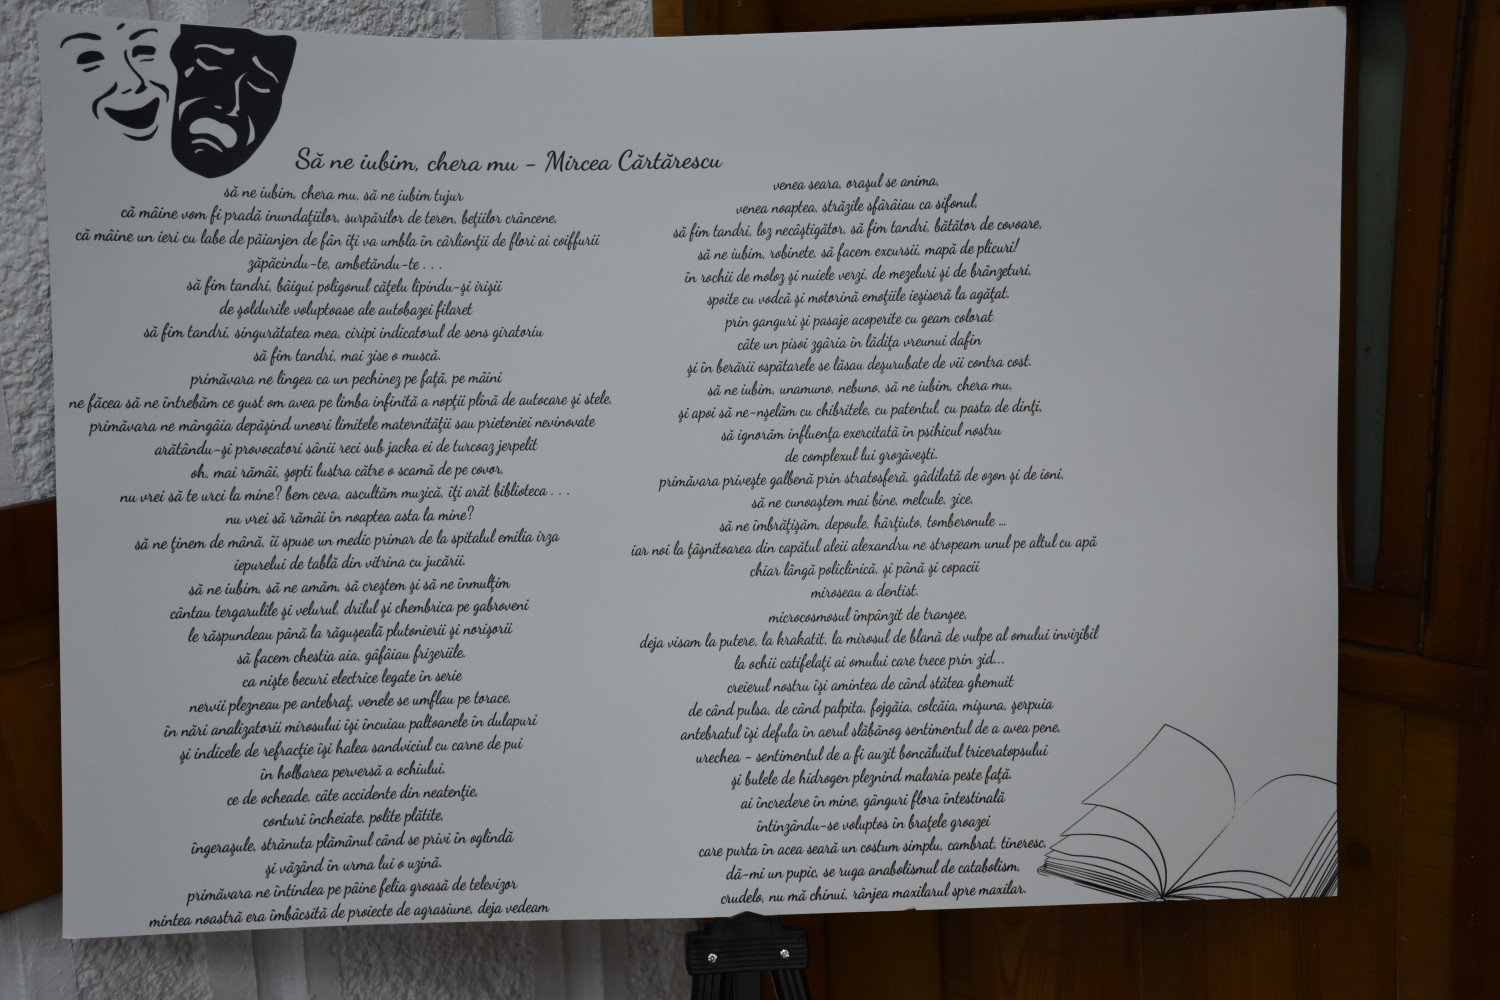 Să ne iubim, chera mu - Mircea Cărtărescu
să ne iubim, chera mu, să ne iubim tujur
că mâine vom fi pradă inundaţiilor, surpărilor de teren, beţiilor crâncene,
că mâine un ieri cu labe de păianjen de fân îţi va umbla în cârlionţii de flori ai coiffurii
zăpăcindu-te, ambetându-te . . .
să fim tandri, bâigui poligonul căţelu lipindu-şi irişii
de şoldurile voluptoase ale autobazei filaret
să fim tandri, singurătatea mea, ciripi indicatorul de sens giratoriu
să fim tandri, mai zise o muscă.
primăvara ne lingea ca un pechinez pe faţă, pe mâini
ne făcea să ne întrebăm ce gust om avea pe limba infinită a nopţii plină de autocare şi stele,
primăvara ne mângâia depăşind uneori limitele maternităţii sau prieteniei nevinovate
arătându-şi provocatori sânii reci sub jacka ei de turcoaz jerpelit
oh, mai rămâi, şopti lustra către o scamă de pe covor,
nu vrei să te urci la mine? bem ceva, ascultăm muzică, îţi arăt biblioteca . . .
nu vrei să rămâi în noaptea asta la mine?
să ne ţinem de mână, îi spuse un medic primar de la spitalul emilia irza
iepurelui de tablă din vitrina cu jucării.
să ne iubim, să ne amăm, să creştem şi să ne înmulţim
cântau tergarulile şi velurul, drilul şi chembrica pe gabroveni
le răspundeau până la răguşeală plutonierii şi norişorii
să facem chestia aia, gâfâiau frizeriile.
ca nişte becuri electrice legate în serie
nervii plezneau pe antebraţ, venele se umflau pe torace,
în nări analizatorii mirosului îşi încuiau paltoanele în dulapuri
şi indicele de refracţie îşi halea sandviciul cu carne de pui
în holbarea perversă a ochiului.
ce de ocheade, câte accidente din neatenţie,
conturi încheiate, polite plătite,
îngeraşule, strănuta plămânul când se privi în oglindă
şi văzând în urma lui o uzină.
primăvara ne întindea pe pâine felia groasă de televizor
mintea noastră era îmbâcsită de proiecte de agrasiune, deja vedeam
venea seara, oraşul se anima,
venea noaptea, străzile sfârâiau ca sifonul,
să fim tandri, loz necâştigător, să fim tandri, bătător de covoare,
să ne iubim, robinete, să facem excursii, mapă de plicuri!
în rochii de moloz şi nuiele verzi, de mezeluri şi de brânzeturi,
spoite cu vodcă şi motorină emoţiile ieşiseră la agăţat.
prin ganguri şi pasaje acoperite cu geam colorat
câte un pisoi zgâria în lădiţa vreunui dafin
şi în berării ospătarele se lăsau deşurubate de vii contra cost.
să ne iubim, unamuno, nebuno, să ne iubim, chera mu,
şi apoi să ne-nşelăm cu chibritele, cu patentul, cu pasta de dinţi,
să ignorăm influenţa exercitată în psihicul nostru
de complexul lui grozăveşti.
primăvara priveşte galbenă prin stratosferă, gâdilată de ozon şi de ioni,
să ne cunoaştem mai bine, melcule, zice,
să ne îmbrăţişăm, depoule, hârţiuto, tomberonule ...
iar noi la ţâşnitoarea din capătul aleii alexandru ne stropeam unul pe altul cu apă
chiar lângă policlinică, şi până şi copacii
miroseau a dentist.
microcosmosul împânzit de tranşee,
deja visam la putere, la krakatit, la mirosul de blană de vulpe al omului invizibil
la ochii catifelaţi ai omului care trece prin zid...
creierul nostru îşi amintea de când stătea ghemuit
de când pulsa, de când palpita, fojgăia, colcăia, mişuna, şerpuia
antebratul îşi defula în aerul slăbănog sentimentul de a avea pene,
urechea - sentimentul de a fi auzit boncăluitul triceratopsului
şi bulele de hidrogen pleznind malaria peste faţă.
ai încredere în mine, gânguri flora intestinală
întinzându-se voluptos în braţele groazei
care purta în acea seară un costum simplu, cambrat, tineresc,
dă-mi un pupic, se ruga anabolismul de catabolism,
crudelo, nu mă chinui, rânjea maxilarul spre maxilar.